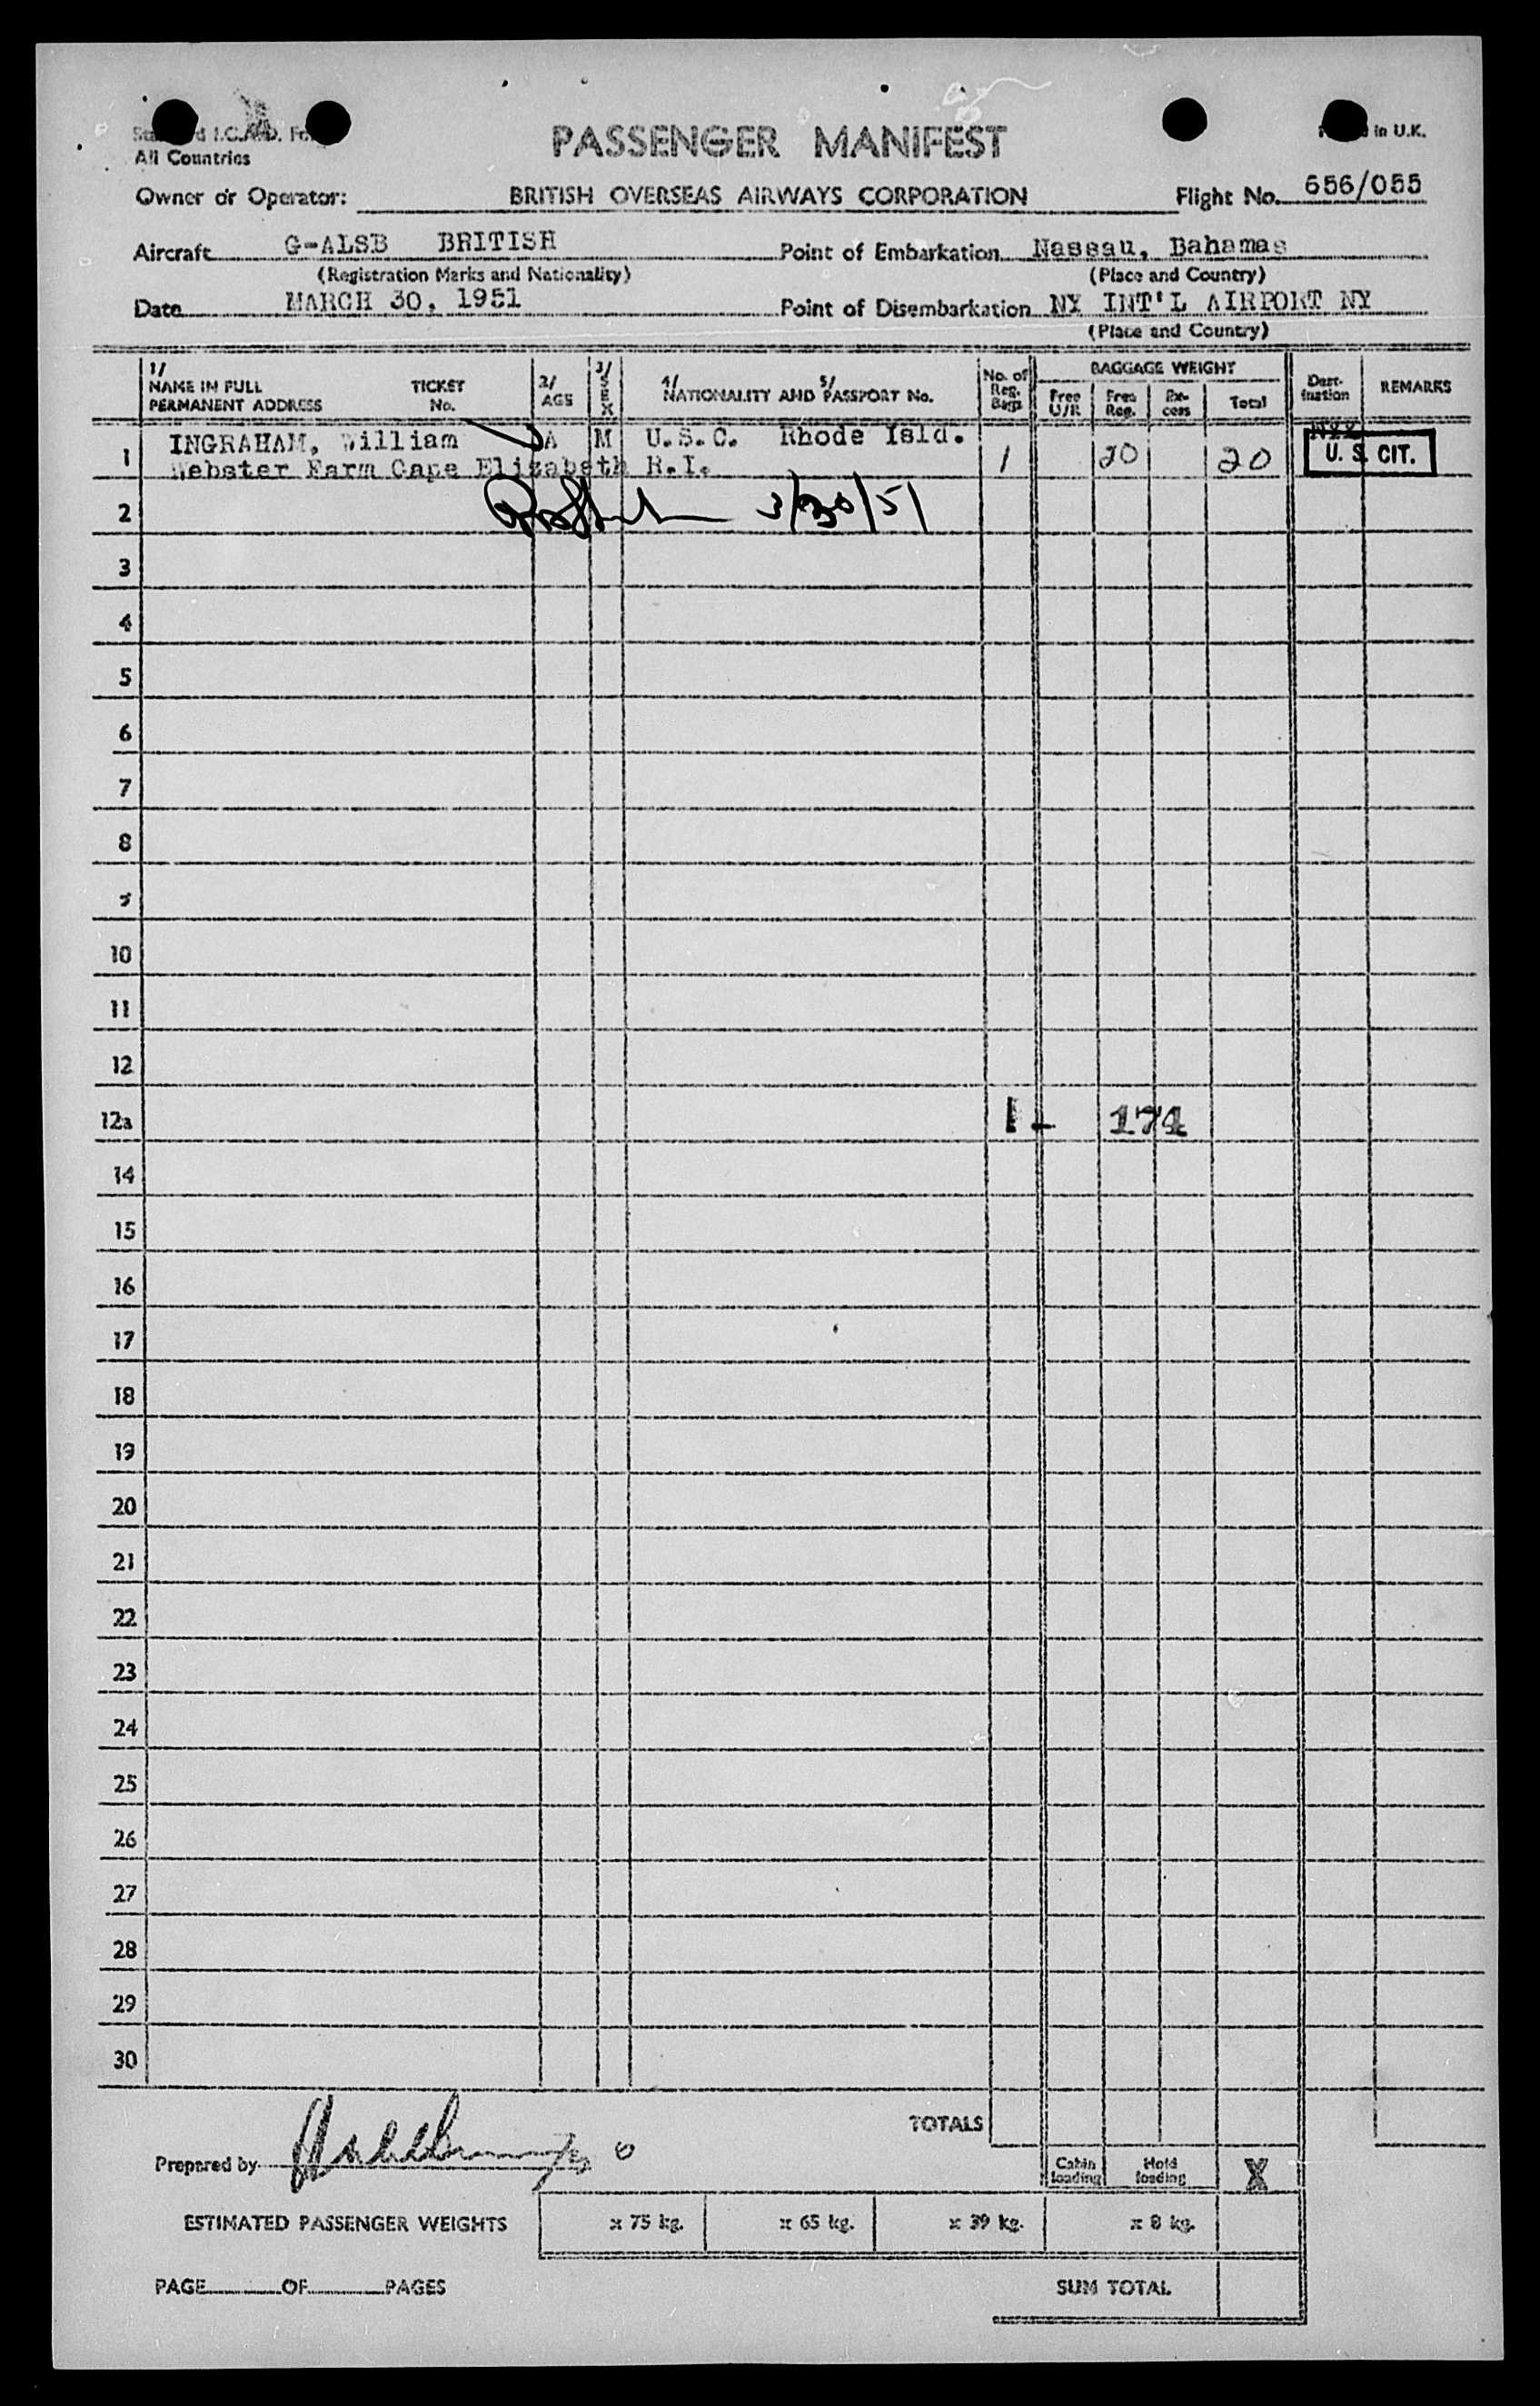 PASSENGER MANIFEST
in U.K.
All Countries
Owner or Operator: BRITISH OVERSEAS AIRWAYS CORPORATION Flight No. 656/055
Aircraft G-ALSB BRITISH Point of Embarkation Nassau, Bahamas
(Registration Marks and Nationality) (Place and Country)
Date MARCH 30, 1951 Point of Disembarkation NY INT'L AIRPORT NY
(Place and Country)
1/ NAME IN FULL PERMANENT ADDRESS TICKET No. 2/ AGE 3/ SEX 4/ NATIONALITY AND 5/ PASSPORT No. No. of Reg. Bags BAGGAGE WEIGHT Free U/R Free Reg. Ex-cess Total Dest-ination REMARKS
1 INGRAHAM, William A M U.S.C. Rhode Isld. 1 20 20 U. S. CIT.
Webster Farm Cape Elizabeth R.I.
2 3/30/51
3
4
5
6
7
8
9
10
11
12
12a 1 - 174
14
15
16
17
18
19
20
21
22
23
24
25
26
27
28
29
30
TOTALS
Prepared by
Cabin loading Hold loading X
ESTIMATED PASSENGER WEIGHTS x 75 kg. x 65 kg. x 39 kg. x 8 kg.
PAGE OF PAGES SUM TOTAL